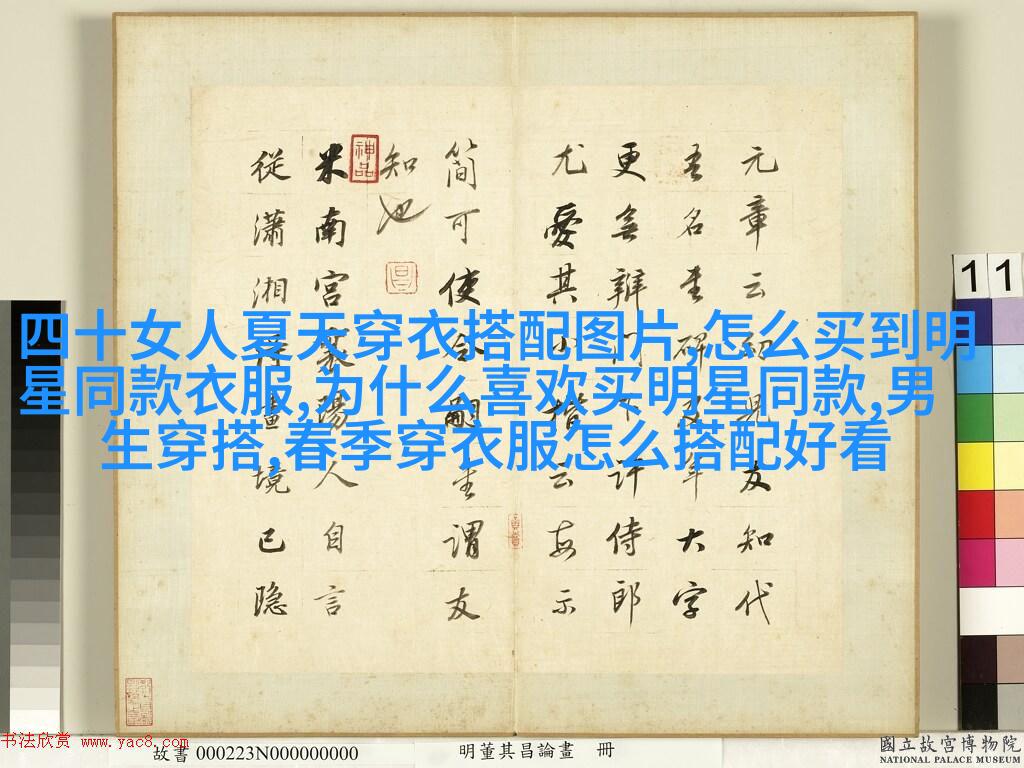 四十女人夏天穿衣搭配图片,怎么买到明
星同款衣服,为什么喜欢买明星同款,男
生穿搭,春季穿衣服怎么搭配好看
元章云幼見友知代
吾名書碑及手大字
更無辨門下許侍郎
尤愛其小楷云每示
簡可使令嗣書謂友
知也
神品
米南宮襄陽人自言
從瀟湘得畫境已隱
11
书法欣赏 www.yac8.com
故書 000223N000000000
明董其昌論畫 冊
國立故宮博物院
NATIONAL PALACE MUSEUM